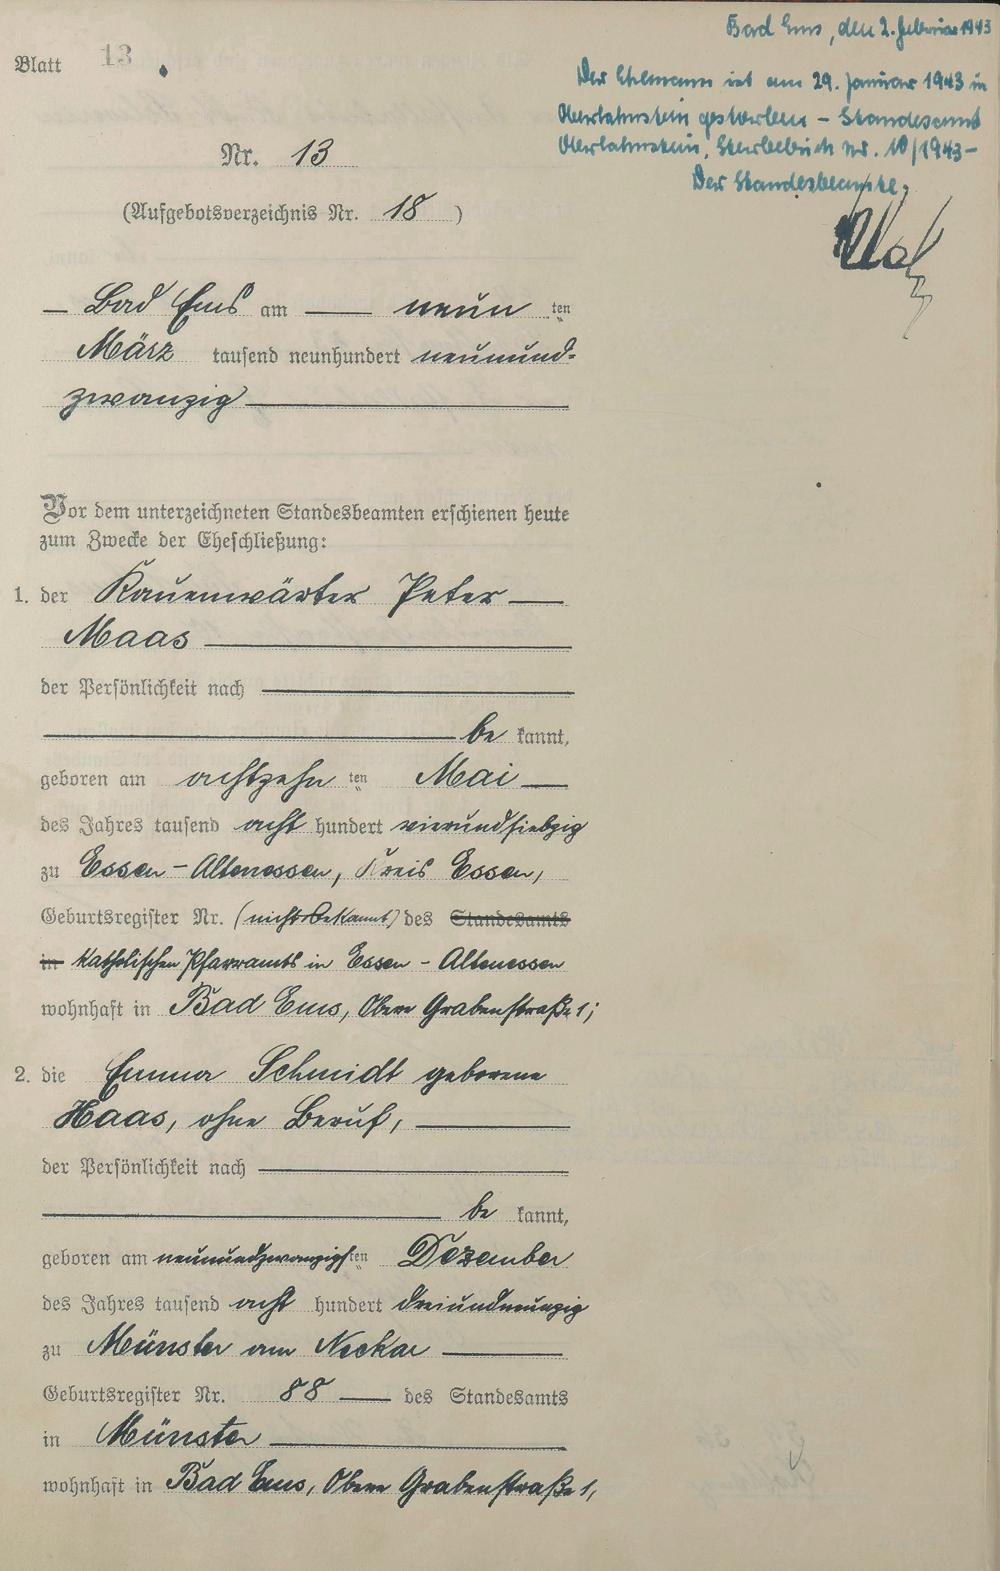 Bad Ems, den 2. Februar 1943
Blatt 13
Der Ehemann ist am 29. Januar 1943 in
Oberlahnstein gestorben – Standesamt
Oberlahnstein, Sterbebuch Nr. 10/1943 –
Der Standesbeamte,
Nr. 13
(Aufgebotsverzeichnis Nr. 18)
— Bad Ems am — neun ten
März tausend neunhundert neunund-
zwanzig
Vor dem unterzeichneten Standesbeamten erschienen heute
zum Zwecke der Eheschließung:
1. der Kauenwärter Peter
Maas
der Persönlichkeit nach
be kannt,
geboren am achtzehn ten Mai
des Jahres tausend acht hundert vierundsiebzig
zu Essen-Altenessen, Kreis Essen,
Geburtsregister Nr. (nicht bekannt) des Standesamts
in katholischen Pfarramts in Essen - Altenessen
wohnhaft in Bad Ems, Obere Grabenstraße 1;
2. die Emma Schmidt geborene
Haas, ohne Beruf,
der Persönlichkeit nach
be kannt,
geboren am neunundzwanzigsten Dezember
des Jahres tausend acht hundert dreiundneunzig
zu Münster am Neckar
Geburtsregister Nr. 88 des Standesamts
in Münster
wohnhaft in Bad Ems, Obere Grabenstraße 1,